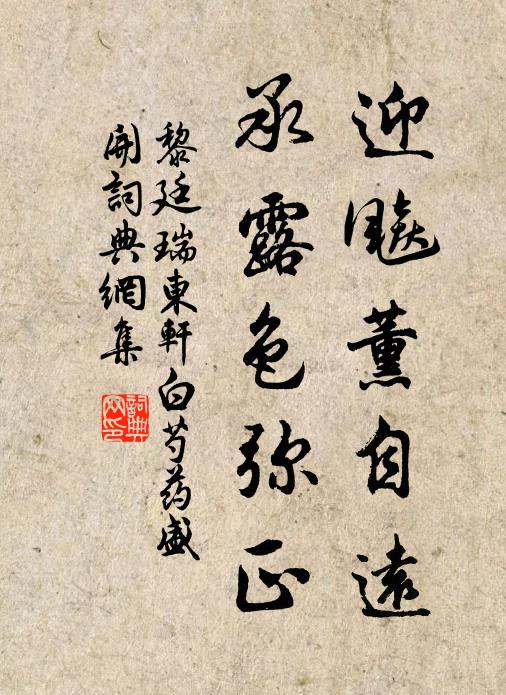 迎飈薰自遠
承露色弥正
黎廷瑞東軒白芍葯盛
開詞典網集
詞典
网印